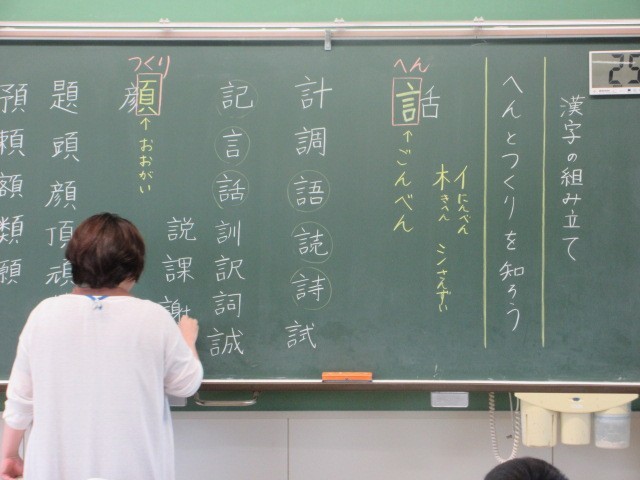 25
漢字の組み立て
へんとつくりを知ろう
イ にんべん
木 きへん
シ さんずい
へん
話
↑ごんべん
計調語読詩試
記言話訓訳詞誠
説課謝
つくり
顔
↑おおがい
題頭顔頂頑
預頼額類願